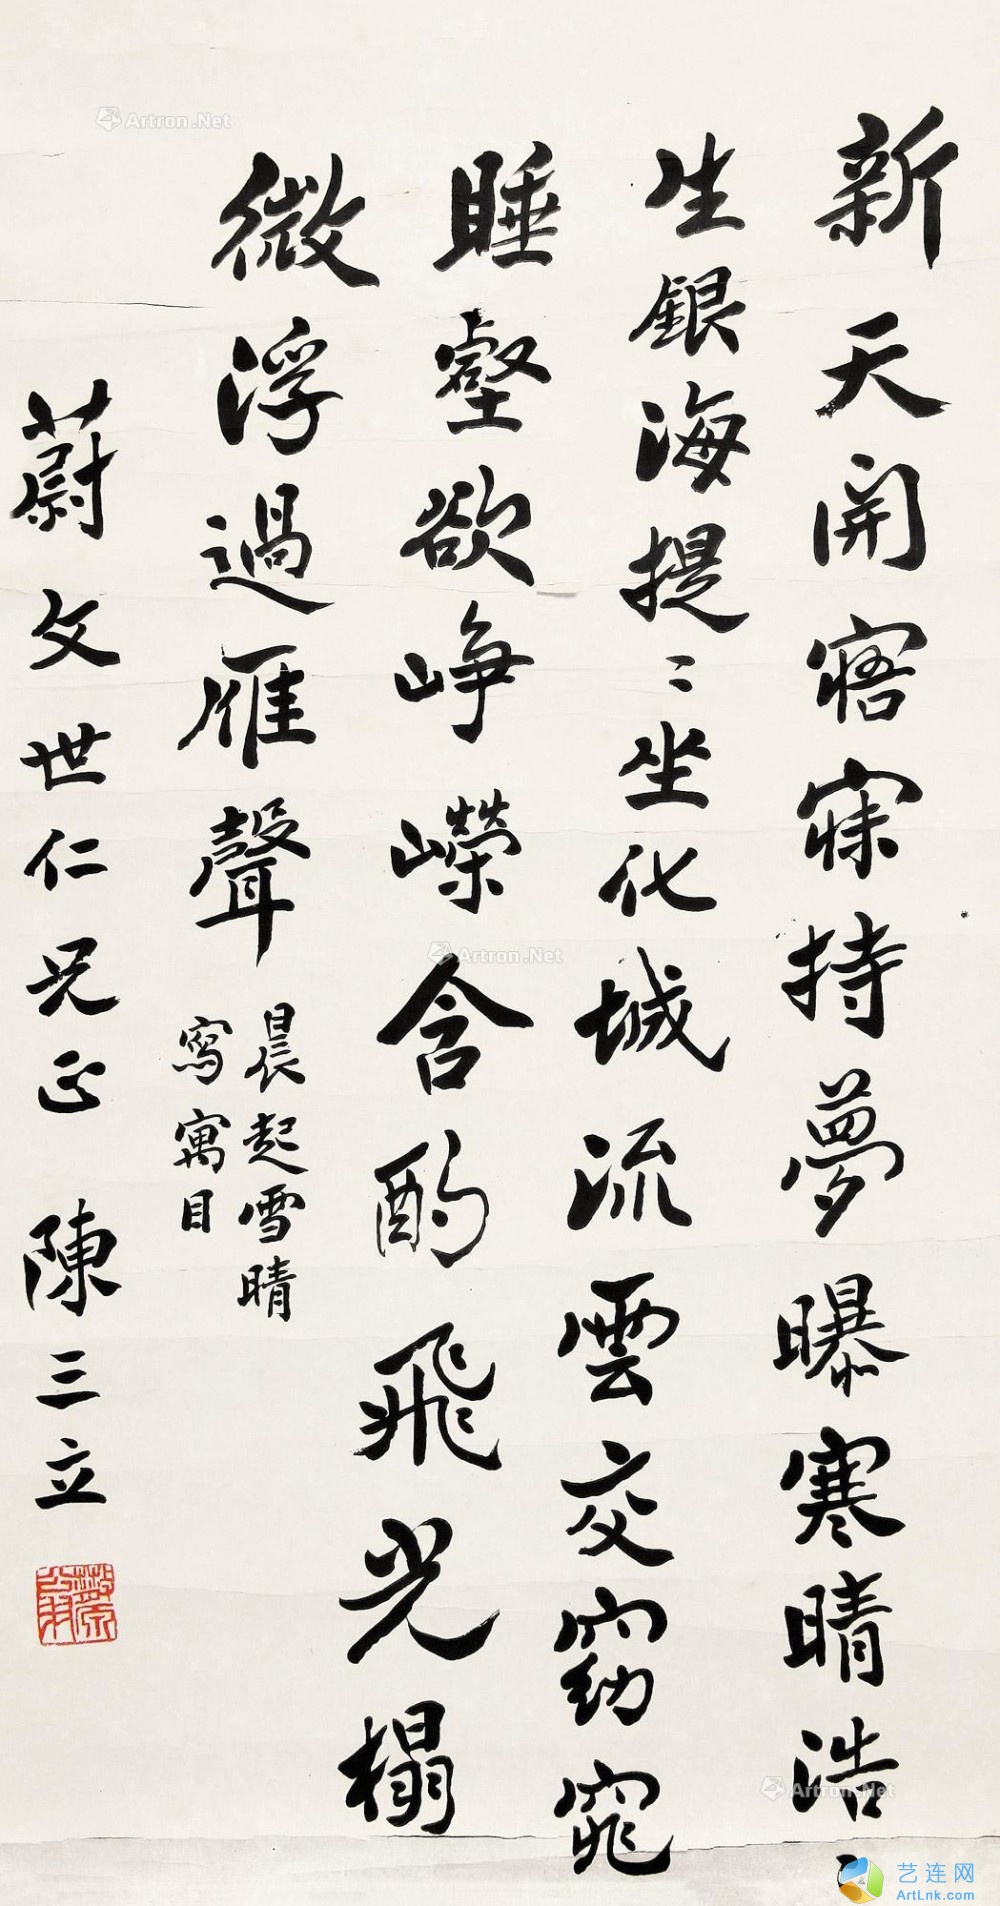 新天開寤寐持夢曝寒晴浩〻
生銀海提〻坐化城流雲交窈窕
睡壑欲崢嶸含酌飛光榻
微浮過雁聲
晨起雪晴
寫寓目
蔚文世仁兄正 陳三立
Artron.Net
Artron.Net
Artron.Net
艺连网
ArtLnk.com